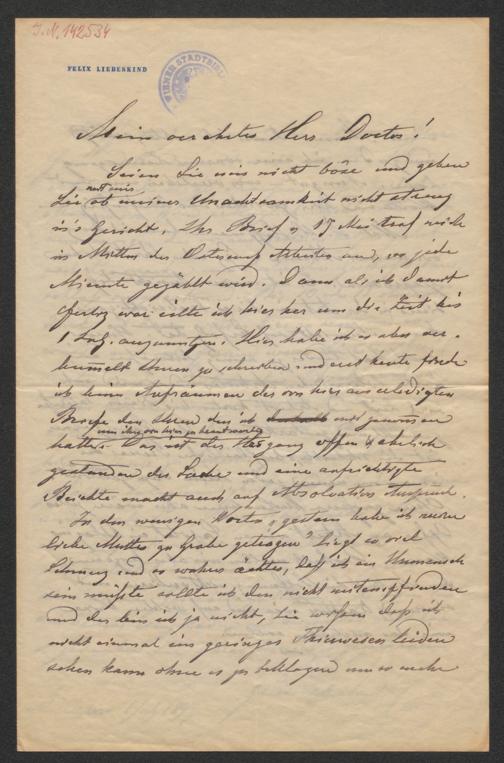 J.N. 142534
FELIX LIEBESKIND
WIENER STADTBIBL
Mein verehrter Herr Doctor!
Seien Sie mir nicht böse und gehen
Sie mit mir ob meiner Unachtsamkeit nicht streng
in's Gericht. Ihr Brief v 17 Mai traf mich
in Mitten der Arbeiten an, wo jede
Minute gezählt wird. Dann als ich damit
fertig war eilte ich hier her um die Zeit bis
1 auszunützen. Hier habe ich es aber ver-
bummelt Ihnen zu schreiben und erst heute finde
ich beim Aufräumen der von hier aus erledigten
Briefe den Ihren den ich deshalb mitgenommen
hatte um ihn von hier zu beantworten. Das ist der Hergang offen & ehrlich
gestanden der Sache und eine aufrichtige
Beichte macht auch auf Absolution Anspruch.
In den wenigen Worten „gestern habe ich meine
liebe Mutter zu Grabe getragen" liegt so viel
Schmerz und so wahrer ächter, daß ich ein Unmensch
sein müßte sollte ich den nicht mitempfinden
und der bin ich ja nicht, Sie wissen daß ich
nicht einmal ein geringes Thierwesen leiden
sehen kann ohne es zu beklagen um so mehr